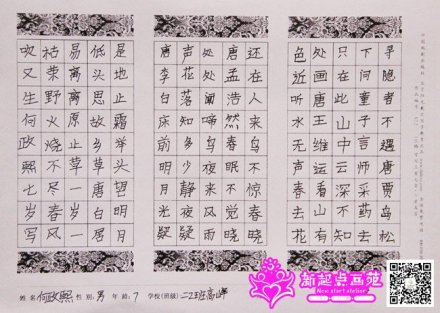 寻隐者不遇唐贾岛松
下问童子言师采药去
只在此山中云深不知
处画唐王维远看山有
色近听水无声春去花
还在人来鸟不惊春晓
唐孟浩然春眠不觉晓
处处闻啼鸟夜来风雨
声花落知多少静夜思
唐李白床前明月光疑
是地上霜举头望明月
低头思故乡草唐白居
易离离原上草一岁一
枯荣野火烧不尽春风
吹又生何政熙七岁写
姓名 何政熙 性别: 男 年龄: 7 学校(班级) 二2班
新起点画苑
New start atelier